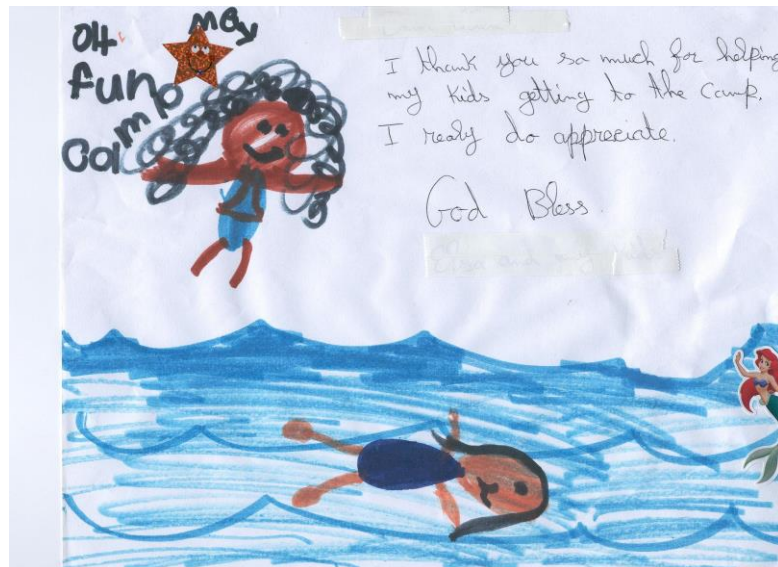 OH may
fun
camp
I thank you so much for helping
my kids getting to the camp.
I realy do appreciate.
God Bless.